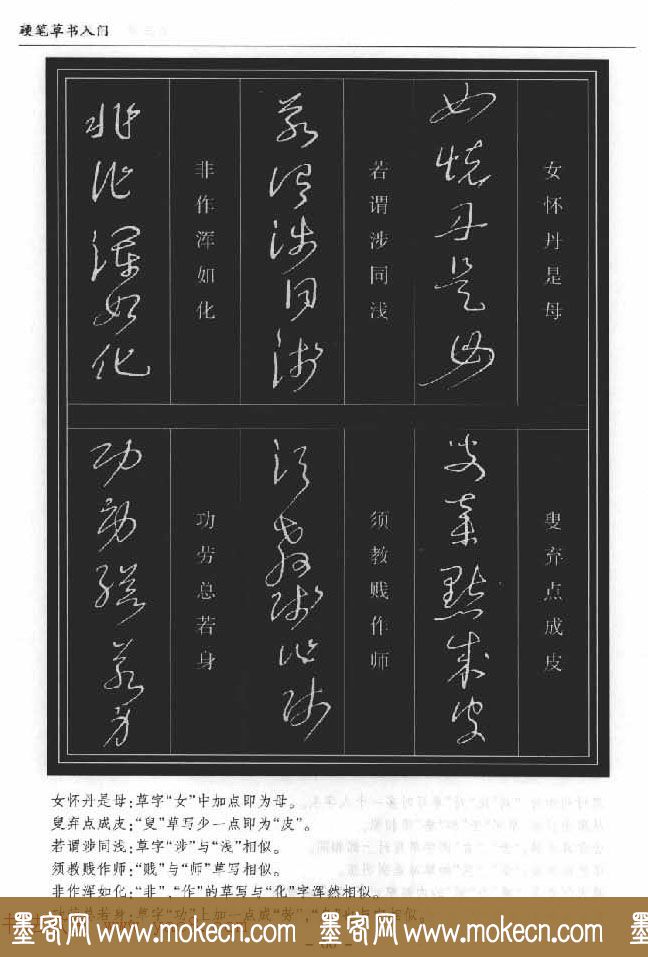 硬笔草书入门
女怀丹是母
若谓涉同浅
非作浑如化
叟弃点成皮
须教贱作师
功劳总若身
女怀丹是母:草字“女”中加点即为母。
叟弃点成皮:“叟”草写少一点即为“皮”。
若谓涉同浅:草字“涉”与“浅”相似。
须教贱作师:“贱”与“师”草写相似。
非作浑如化:“非”,“作”的草写与“化”字浑然相似。
墨客网 www.mokecn.com 墨客网 www.mokecn.com 墨客网